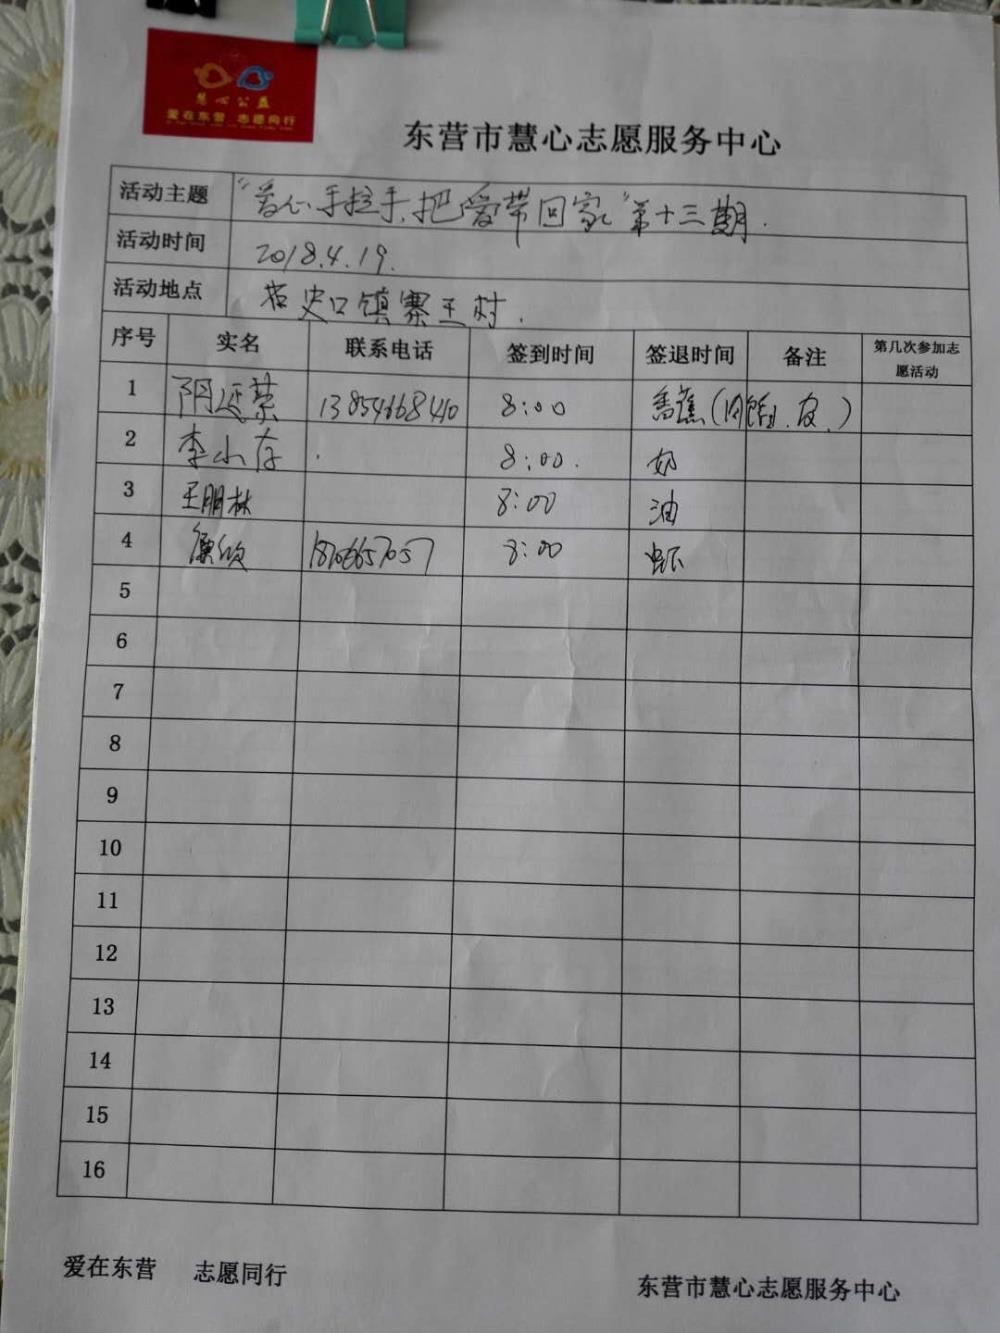 慧心公益
爱在东营 志愿同行
东营市慧心志愿服务中心
活动主题 "爱心手拉手.把爱带回家"第十三期.
活动时间 2018.4.19.
活动地点 史口镇寨王村.
序号 实名 联系电话 签到时间 签退时间 备注 第几次参加志愿活动
1 阴延荣 13854668440 8:00 香蕉(
2 李小存 8:00. 奶
3 王朋林 8:00 油
4 8:00 虾
5
6
7
8
9
10
11
12
13
14
15
16
爱在东营 志愿同行 东营市慧心志愿服务中心